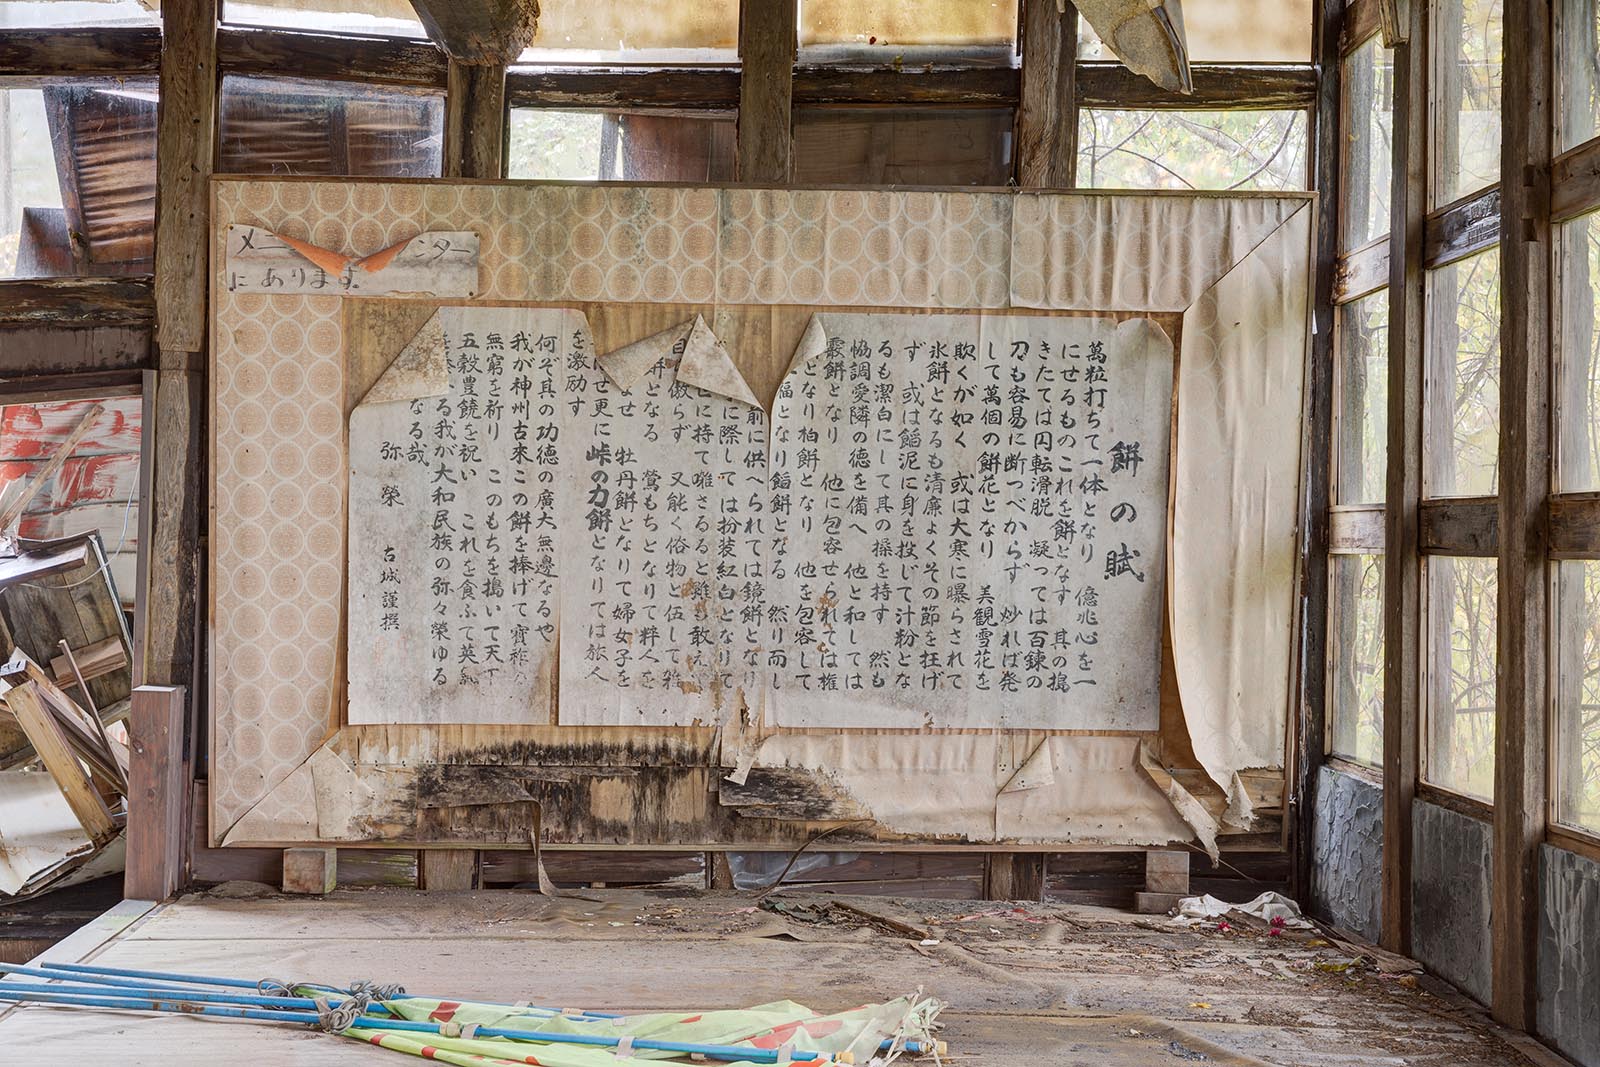 メニー
ンター
にあります。
餅の賦
萬粒打ちて一体となり 億兆心を一
にせるものこれを餅となす 其の搗
きたては円転滑脱 凝っては百錬の
刀も容易に断つべからず 炒れば発
して萬個の餅花となり 美観雪花を
欺くが如く 或は大寒に曝らされて
氷餅となるも清廉よくその節を枉げ
ず 或は餡泥に身を投じて汁粉とな
るも潔白にして其の操を持す 然も
恊調愛隣の徳を備へ 他と和しては
霰餅となり 他に包容せられては椎
となり柏餅となり 他を包容して
福となり餡餅となる 然り而し
前に供へられては鏡餅となり
に際しては扮装紅白となりて
に持て囃さるると雖も敢え
傲らず 又能く俗物と伍して雑
餅となる 鶯もちとなりて粋人を
せ 牡丹餅となりて婦女子を
せ更に峠の力餅となりては旅人
を激励す
何ぞ其の功徳の廣大無邊なるや
我が神州古來この餅を捧げて寳祚
無窮を祈り このもちを搗いて天下
五穀豊饒を祝い これを食ふて英
る我が大和民族の弥々榮ゆる
なる哉
弥榮 古城謹撰